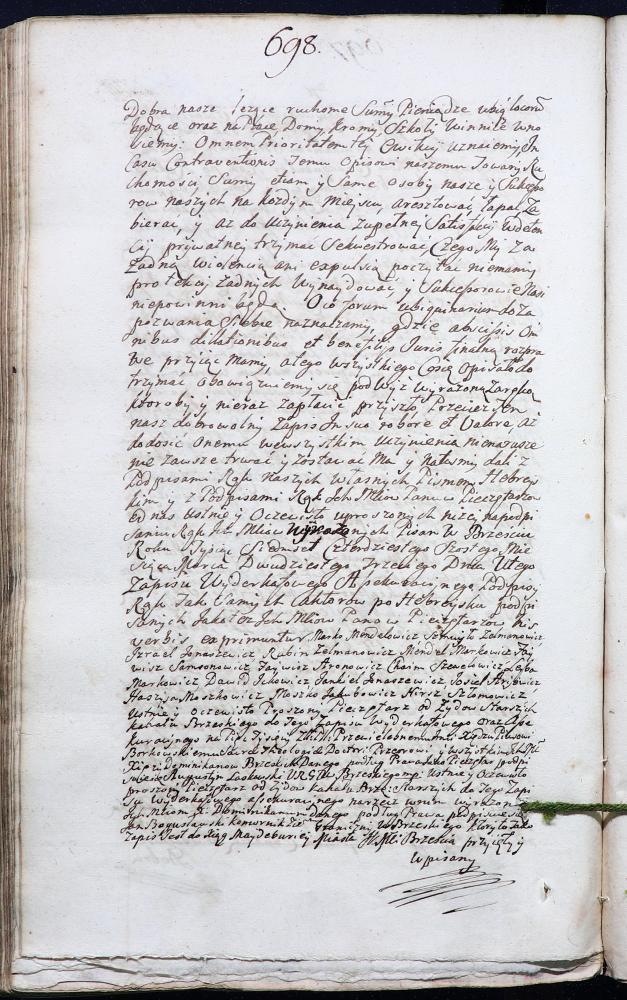 698.
Dobra nasze leżące ruchome Summy Pieniądze ubiq locorum
będące oraz na Place Domy Kromy Szkoły Winnice wno
siemy. Omnem Prioritatem tey Ewikcyi uznaiemy, In
Casu Contraventionis temu opisowi naszemu Towary Ru
chomości Summy etiam y Same osoby nasze y Sukcesso
row naszych na każdym mieyscu, aresztować, łapać, Za
bierać, y aż do uczynienia zupełney Satisfakcyi w deten
cyi prywatney trzymać Sekwestrować Czego My za
żadną wiolencią ani expulsią poczytać niemamy
protekcyi żadnych wynaydować, y Sukcessorowie Nasi
niepowinni będą. Oco forum ubiquinarium do Za
pozwania Siebie naznaczamy, gdzie abscissis om
nibus dilationibus et beneficijs Juris finalną rozpra
wę przyiąć mamy, a tego wszystkiego co się opisało do
trzymać obowiązuiemy się pod wyż wyrażoną Zaręką
ktorąby y nieraz zapłacić przyszło, Przecież ten
nasz dobrowolny Zapis In suo robore et Valore, aż
do dość onemu wewszystkim uczynienia nienarusze
nie zawsze trwać y zostawać ma y na tośmy dali z
Podpisami Rąk naszych własnych Pismem Hebrey
skim y z Podpisami Rąk Ich Mciow Panow Pieczętarzow
od nas ustnie y Oczewisto uproszonych niżey na podpi
saniu Rąk Ich Mciow wyrażonych Pisan w Brzesciu
Roku Tysiąc Siedmset Czterdziestego Szostego Mie
siąca Marca Dwudziestego Trzeciego Dnia U tego
Zapisu Wyderkafowego Assekuracyinego Podpisy
Rąk tak Samych aktorow po Hebreysku podpi
sanych Jako też Ich Mciow Panow Pieczętarzow his
verbis exprimuntur. Marko Mendelowicz Szmuyło Zelmanowicz
Izrael Ignaszewicz Rubin Zelmanowicz Mendel Markowicz
wisz Samsonowicz Faywisz Aronowicz Chaim Leyba
Markowicz Dawid Ickowicz Jankiel Josiel
Moszkowicz Moszko Jakubowicz Hirsz Szlomowicz
Ustnie y oczewisto Proszony Pieczętarz od Żydow Starszych
Kahału Brzeskiego do tego Zapisu Wyderkafowego oraz Asse
kuracyinego na Przewielebnemu Xiędzu
Borkowskiemu Sacrae Theologiae Doctori Przeorowi y wszystkim Ich
Xięży Dominikanow Brzeskich Danego podług Prawa Jako Pieczętarz podpi
suię się Augustyn Ustnie y Oczewisto
proszony Pieczętarz od Żydow Kahału Brze: Starszych do tego Zapi
su Wyderkafowego assekuracyinego na rzecz w nim wyrażoną
Ich Mciom XX. Dominikanom danego podług Prawa podpisuię się
Jan Bogusławski Komornik Graniczny Wdztwa Brzeskiego Ktory to
Zapis Jest do xiąg Magdeburiey Miasta JKMci Brzescia przyięty y
wpisany